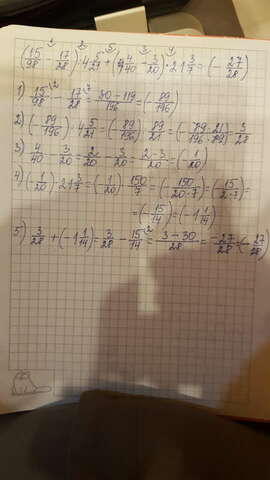 (15/98 - 17/28) · 4 5/21 + (4/40 - 3/20) · 21 3/7 = (- 27/28)
1) 15/98 - 17/28 = 30 - 119/196 = (- 89/196)
2) (- 89/196) · 4 5/21 = (- 89/196) · 89/21 = (- 89·21/196·89) = - 3/28
3) 4/40 - 3/20 = 2/20 - 3/20 = 2-3/20 = (- 1/20)
4) (- 1/20) · 21 3/7 = (- 1/20) · 150/7 = (- 150/20·7) = (- 15/2·7) =
= (- 15/14) = (- 1 1/14)
5) 3/28 + (- 1 1/14) = 3/28 - 15/14 = 3 - 30/28 = - 27/28 = (- 27/28)